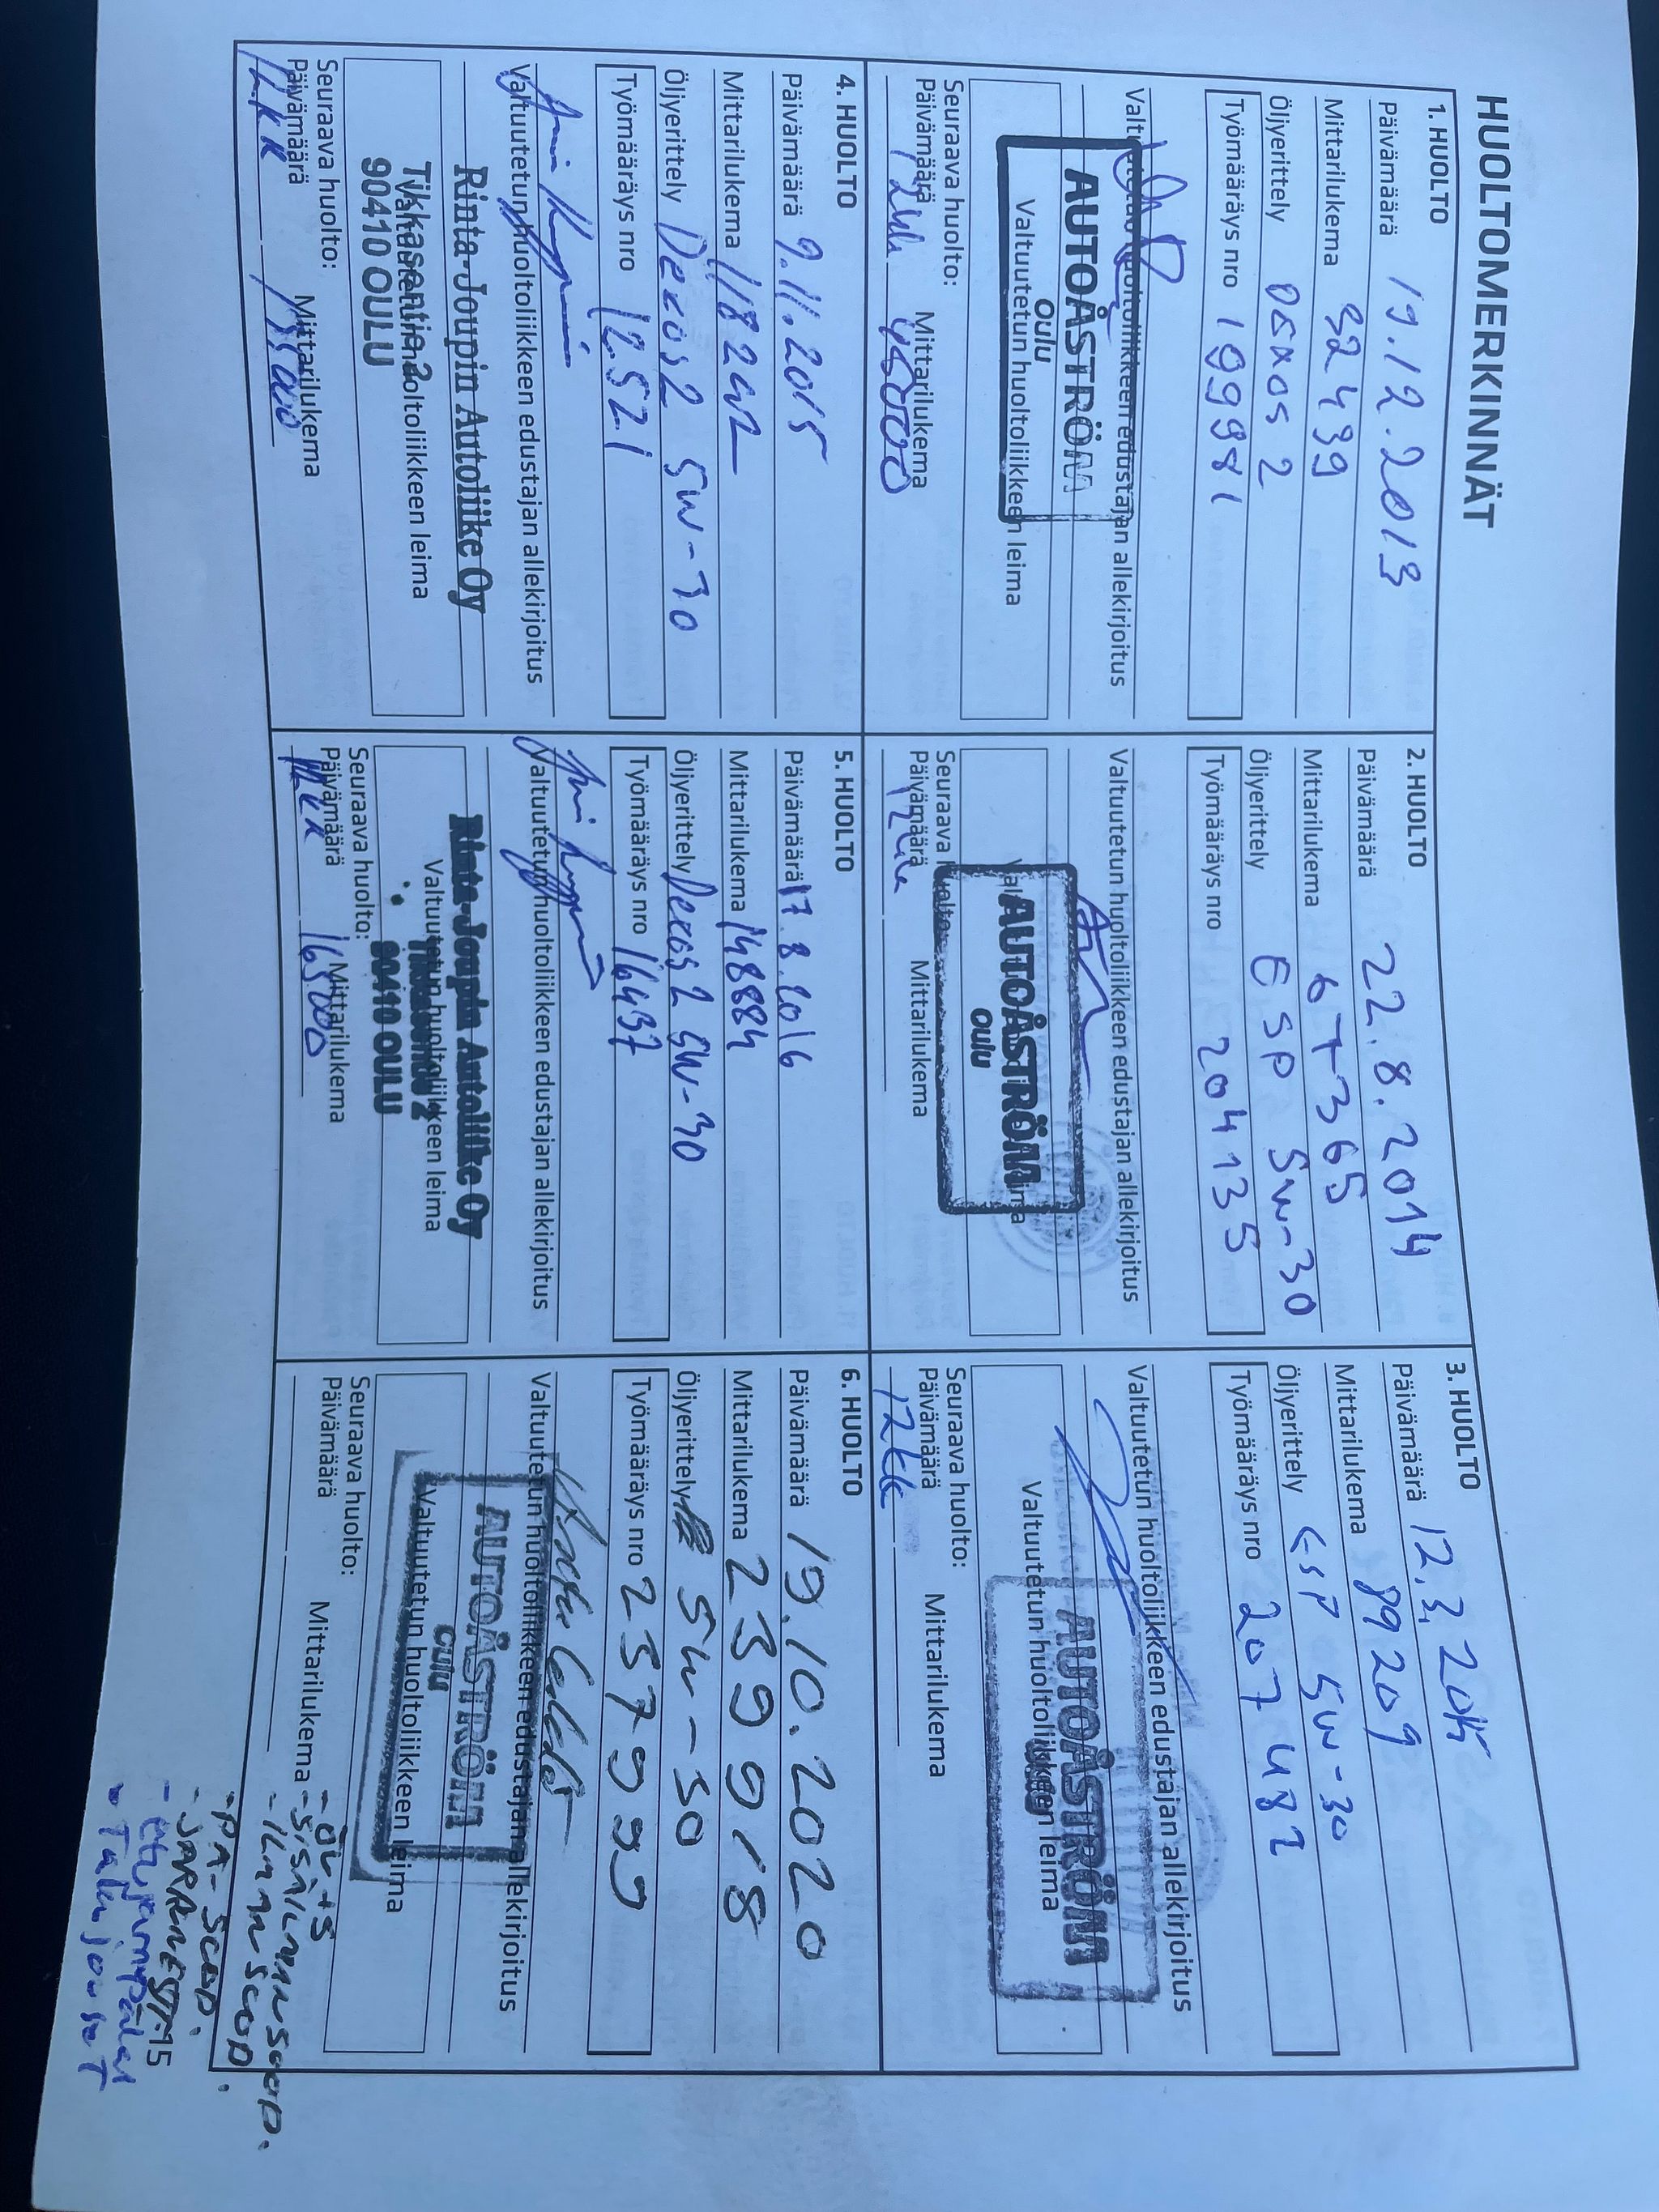 HUOLTOMERKINNÄT
1. HUOLTO
Päivämäärä 19.12.2013
Mittarilukema 32439
Öljyerittely Dexos 2
Työmääräys nro 199981
Valtuutetun huoltoliikkeen edustajan allekirjoitus
AUTOÅSTRÖM
Oulu
Valtuutetun huoltoliikkeen leima
Seuraava huolto:
Päivämäärä Mittarilukema
12kk
2. HUOLTO
Päivämäärä 22.8.2014
Mittarilukema 67365
Öljyerittely ESP 5w-30
Työmääräys nro 204135
Valtuutetun huoltoliikkeen edustajan allekirjoitus
AUTOÅSTRÖM
Oulu
Seuraava huolto:
Päivämäärä Mittarilukema
12kk
3. HUOLTO
Päivämäärä 12.3.2015
Mittarilukema 89209
Öljyerittely ESP 5w-30
Työmääräys nro 207482
Valtuutetun huoltoliikkeen edustajan allekirjoitus
AUTOÅSTRÖM
Valtuutetun huoltoliikkeen leima
Seuraava huolto:
Päivämäärä Mittarilukema
12kk
4. HUOLTO
Päivämäärä 9.11.2015
Mittarilukema
Öljyerittely Dexos2 5W-30
Työmääräys nro 12521
Valtuutetun huoltoliikkeen edustajan allekirjoitus
Rinta-Joupin Autoliike Oy
Tikkasentie 2
Valtuutetun huoltoliikkeen leima
90410 OULU
Seuraava huolto:
Päivämäärä Mittarilukema
12kk
5. HUOLTO
Päivämäärä 17.8.2016
Mittarilukema 148884
Öljyerittely Dexos 2 5W-30
Työmääräys nro 16437
Valtuutetun huoltoliikkeen edustajan allekirjoitus
Rinta-Joupin Autoliike Oy
Valtuutetun huoltoliikkeen leima
90410 OULU
Seuraava huolto:
Päivämäärä Mittarilukema
165000
6. HUOLTO
Päivämäärä 19.10.2020
Mittarilukema 239918
Öljyerittely 5w-30
Työmääräys nro 257999
Valtuutetun huoltoliikkeen edustajan allekirjoitus
AUTOÅSTRÖM
Oulu
Valtuutetun huoltoliikkeen leima
Seuraava huolto:
Päivämäärä Mittarilukema
- ÖL+S
- SISÄILMANSUOD.
- ILMANSUOD.
- PA-SUOD.
- JARRNEST.
- Takajouset